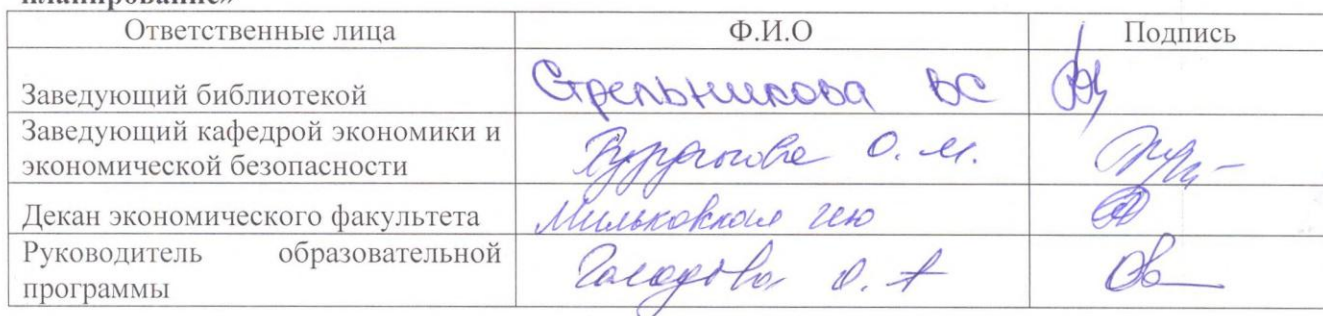 планирование»
Ответственные лица Ф.И.О Подпись
Заведующий библиотекой Стрельникова ВС
Заведующий кафедрой экономики и
экономической безопасности О. М.
Декан экономического факультета Мильковская
Руководитель образовательной
программы О. А